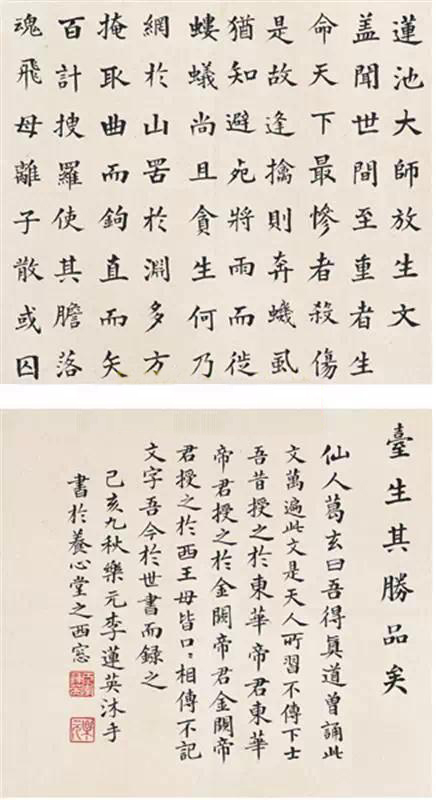 蓮池大師放生文
盖聞世間至重者生
命天下最慘者殺傷
是故逢擒則奔蟣虱
猶知避死將雨而徙
螻蟻尚且貪生何乃
網於山罟於淵多方
掩取曲而鉤直而矢
百計搜羅使其膽落
魂飛母離子散或囚
臺生其勝品矣
仙人葛玄曰吾得真道曾誦此
文萬遍此文是天人所習不傳下士
吾昔授之於東華帝君東華
帝君授之於金闕帝君金闕帝
君授之於西王母皆口〻相傳不記
文字吾今於世書而錄之
己亥九秋樂元李蓮英沐手
書於養心堂之西窓